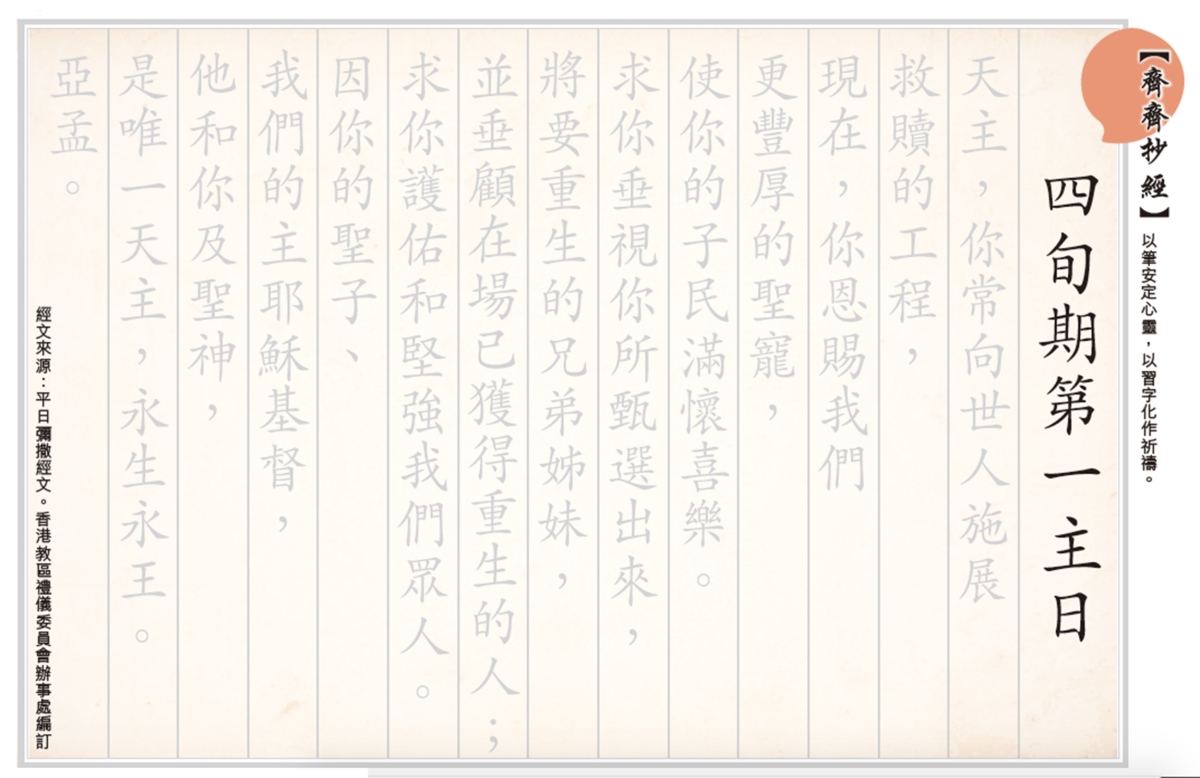 【齊齊抄經】以筆安定心靈，以習字化作祈禱。
四旬期第一主日
天主，你常向世人施展
救贖的工程，
現在，你恩賜我們
更豐厚的聖寵，
使你的子民滿懷喜樂。
求你垂視你所甄選出來，
將要重生的兄弟姊妹，
並垂顧在場已獲得重生的人；
求你護佑和堅強我們眾人。
因你的聖子、
我們的主耶穌基督，
他和你及聖神，
是唯一天主，永生永王。
亞孟。
經文來源：平日彌撒經文。香港教區禮儀委員會辦事處編訂